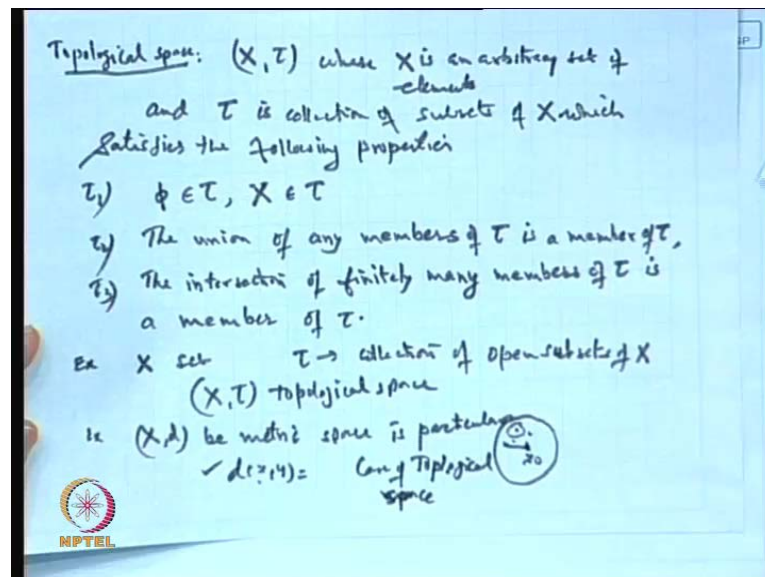 Topological space: (X, τ) where X is an arbitrary set of
elements
and τ is collection of subsets of X which
Satisfies the following properties
τ₁) φ ∈ τ, X ∈ τ
τ₂) The union of any members of τ is a member of τ,
τ₃) The intersection of finitely many members of τ is
a member of τ.
Ex X set τ → collection of open subsets of X
(X, τ) topological space
(X, d) be metric space is particular
✓ d(x, y) = Case of Topological x₀
space
NPTEL